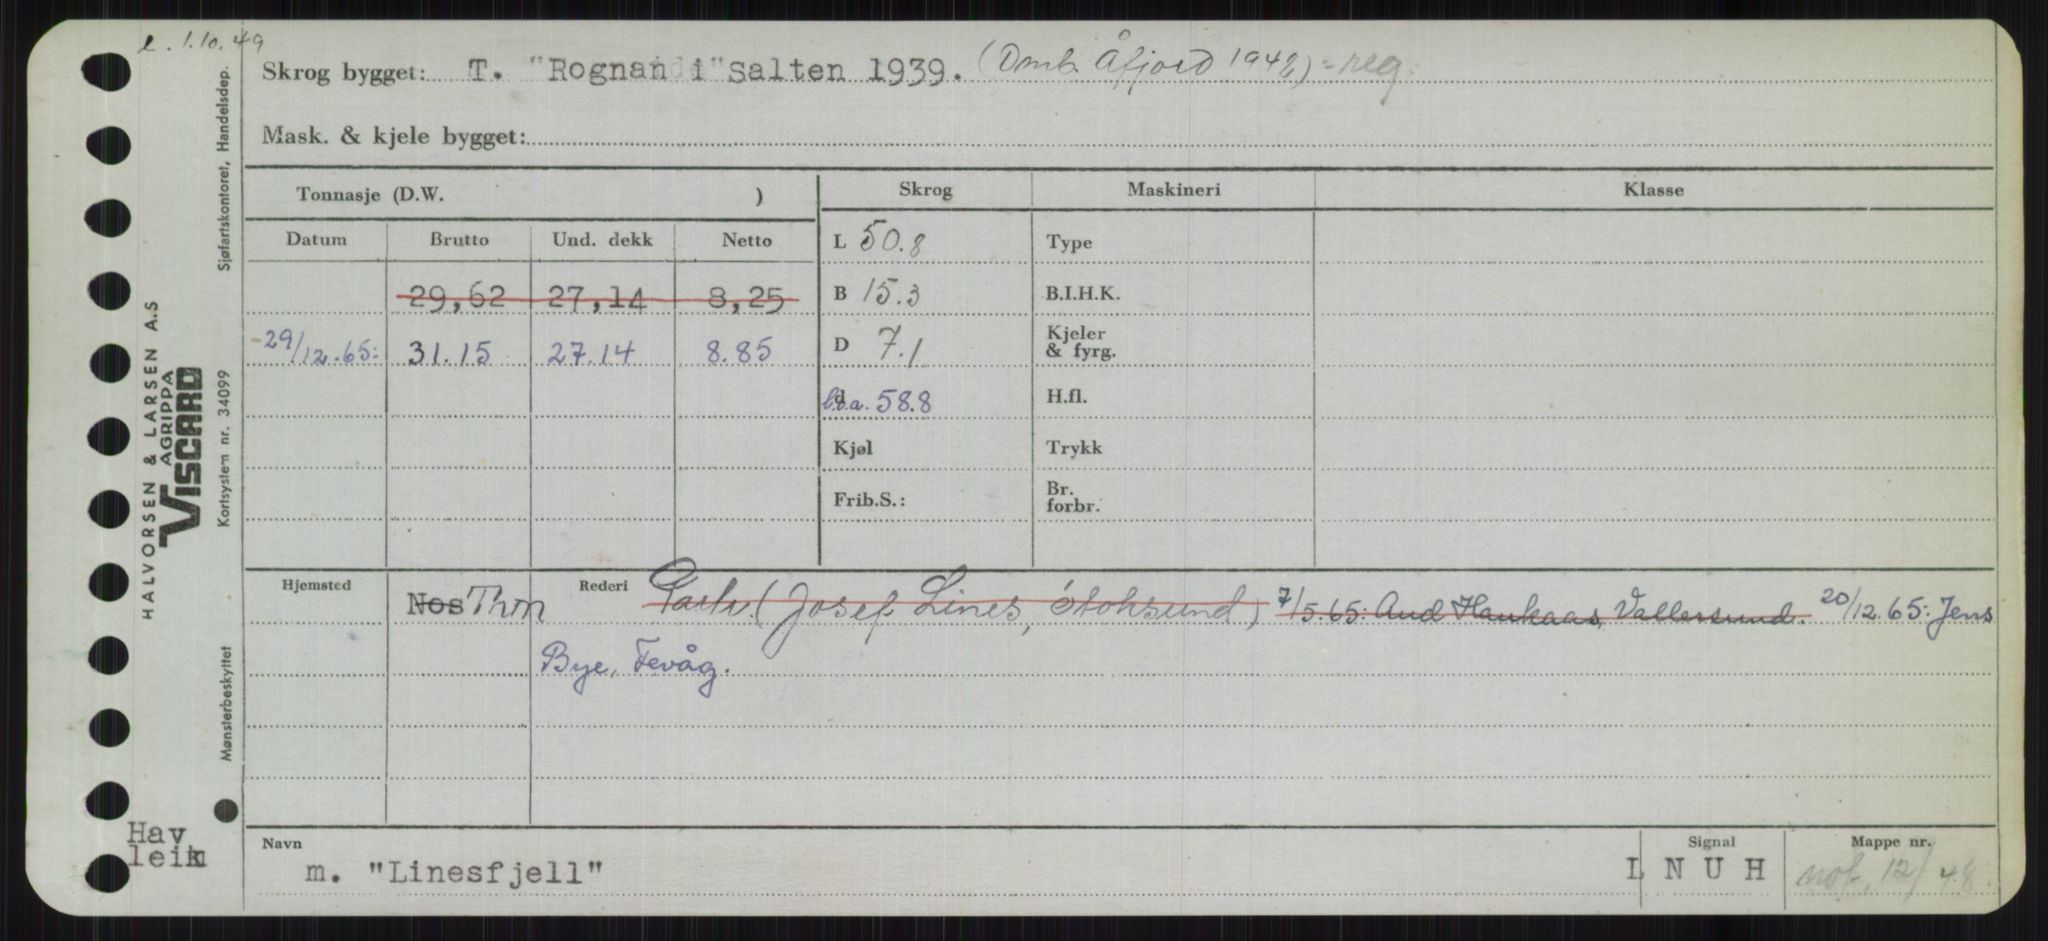 e. 1.10.49
Skrog bygget: T. "Rognan i" Salten 1939. (Omb. Åfjord 1942) = reg.
Mask. & kjele bygget:
Tonnasje (D.W. )
Skrog
Maskineri
Klasse
Datum
Brutto
Und. dekk
Netto
L 50.8
Type
29,62 27,14 8,25
B 15.3
B.I.H.K.
29/12.65: 31.15 27.14 8.85
D 7.1
Kjeler
& fyrg.
l.o.a. 58.8
H.fl.
Kjøl
Trykk
Frib.S.:
Br.
forbr.
Hjemsted
Nos Thm
Rederi
Partr. (Josef Lines, Stoksund) 7/5.65: Aud Haukaas, Vallersund. 20/12.65: Jens
Bye, Fevåg.
Navn
m. "Linesfjell"
Signal
L N U H
Mappe nr.
not. 12/48.
Hav
leik
HALVORSEN & LARSEN A.S
AGRIPPA
VISCARD
Sjøfartskontoret, Handelsdep.
Kortsystem nr. 34099
Mønsterbeskyttet